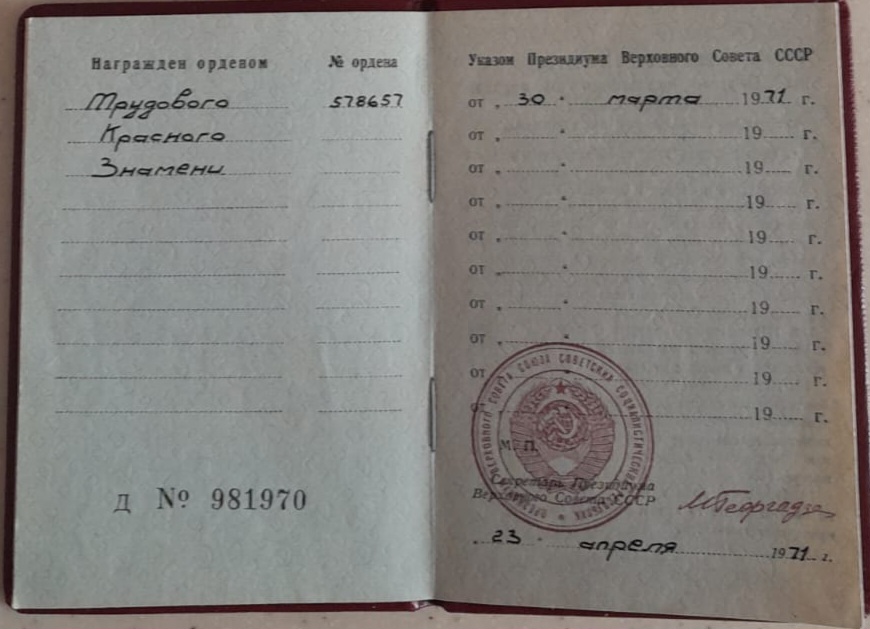 Награжден орденом
№ ордена
Трудового
578657
Красного
Знамени
Д № 981970
Указом Президиума Верховного Совета СССР
от „ 30 “ марта 1971 г.
от „ “ 19 г.
от „ “ 19 г.
от „ “ 19 г.
от „ “ 19 г.
от „ “ 19 г.
от „ “ 19 г.
от „ “ 19 г.
от „ “ 19 г.
от „ “ 19 г.
ВЕРХОВНОГО СОВЕТА СОЮЗА СОВЕТСКИХ СОЦИАЛИСТИЧЕСКИХ
М. П.
Секретарь Президиума
Верховного Совета СССР
МГеоргадзе
„ 23 “ апреля 1971 г.